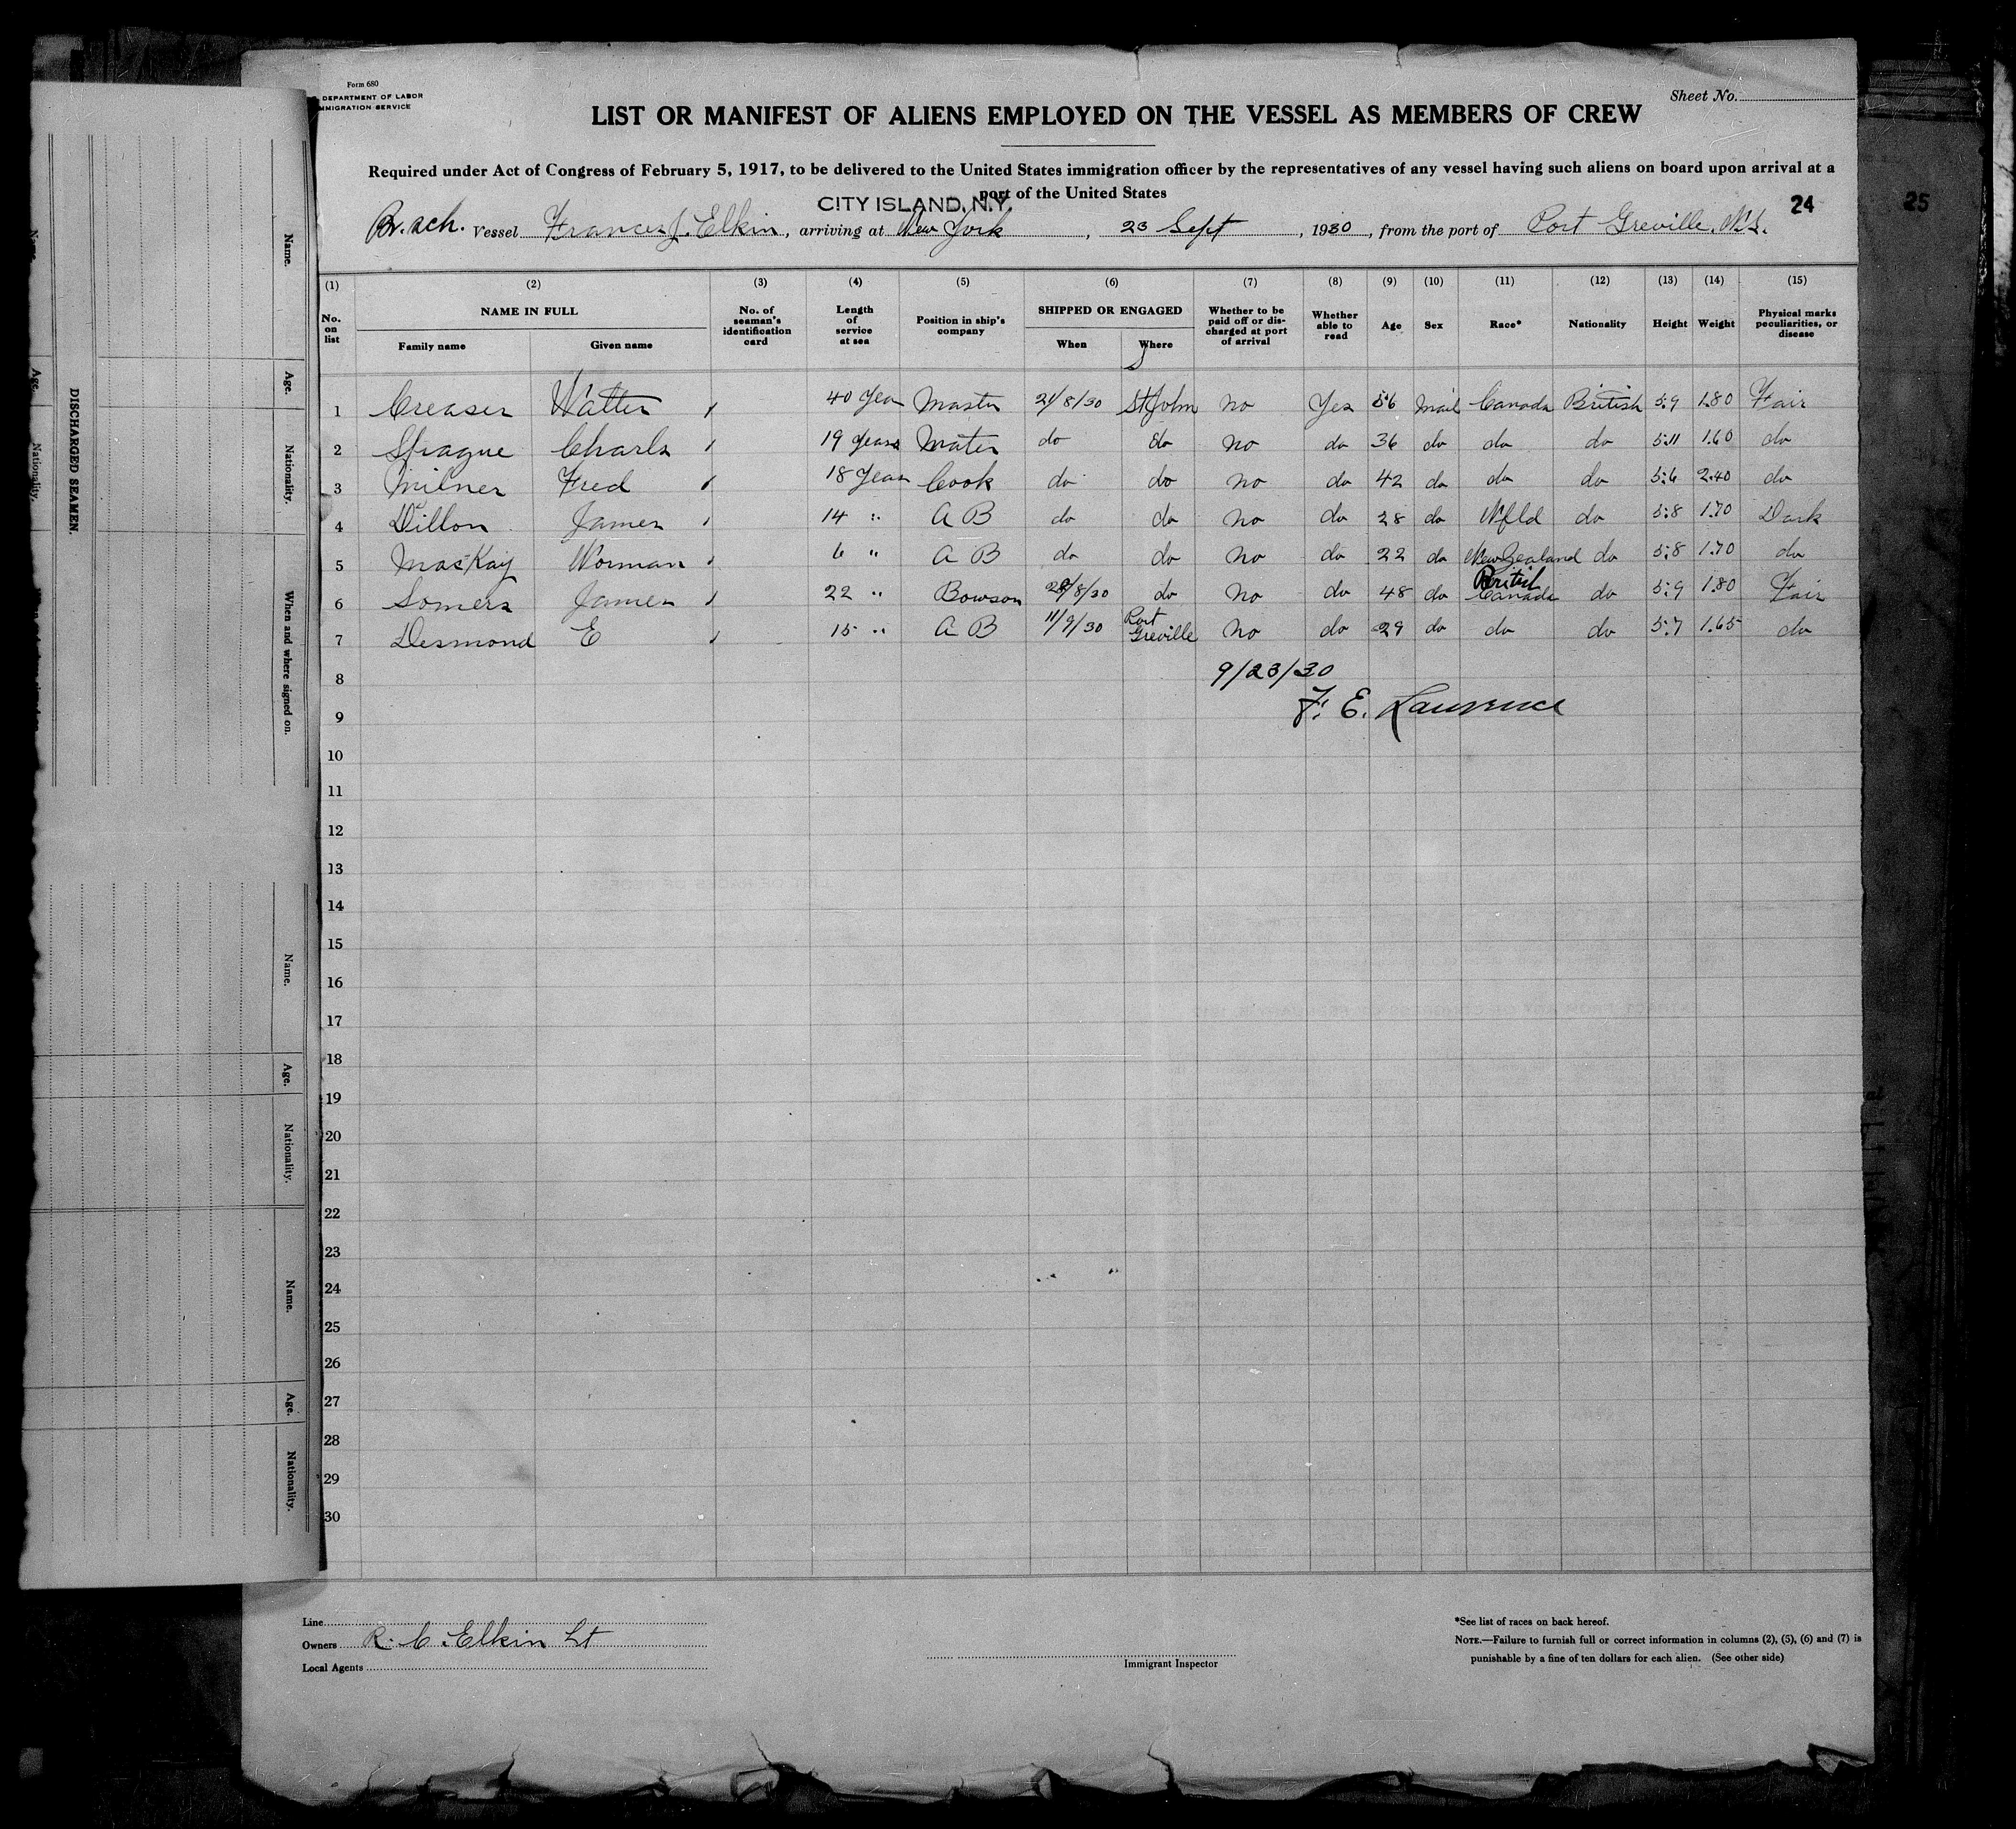 Form 680
DEPARTMENT OF LABOR
IMMIGRATION SERVICE
Sheet No.
LIST OR MANIFEST OF ALIENS EMPLOYED ON THE VESSEL AS MEMBERS OF CREW
Required under Act of Congress of February 5, 1917, to be delivered to the United States immigration officer by the representatives of any vessel having such aliens on board upon arrival at a
port of the United States
CITY ISLAND, N.Y.
24
25
Br. sch. Vessel Frances J. Elkin, arriving at New York, 23 Sept, 1930, from the port of Port Greville. N.S.
(1) (2) (3) (4) (5) (6) (7) (8) (9) (10) (11) (12) (13) (14) (15)
No. on list NAME IN FULL Family name Given name No. of seaman's identification card Length of service at sea Position in ship's company SHIPPED OR ENGAGED When Where Whether to be paid off or discharged at port of arrival Whether able to read Age Sex Race* Nationality Height Weight Physical marks peculiarities, or disease
1 Creaser Walter 40 Year Master 21/8/30 St John no Yes 56 Mail Canada British 5:9 1.80 Fair
2 Sprague Charls 19 Years Mate do do no do 36 do do do 5:11 1.60 do
3 Milner Fred 18 Years Cook do do no do 42 do do do 5:6 2.40 do
4 Dillon James 14 " A B do do no do 28 do Nfld do 5:8 1.70 Dark
5 MacKay Norman 6 " A B do do no do 22 do New Zealand do 5:8 1.70 do
British
6 Somers James 22 " Bowson /8/30 do no do 48 do Canada do 5:9 1.80 Fair
7 Desmond E 15 " A B 11/9/30 Port Greville no do 29 do do do 5:7 1.65 do
8
9/23/30
9
F. E. Lawrence
10
11
12
13
14
15
16
17
18
19
20
21
22
23
24
25
26
27
28
29
30
Line
Owners R. C. Elkin Lt
Local Agents
Immigrant Inspector
*See list of races on back hereof.
NOTE.—Failure to furnish full or correct information in columns (2), (5), (6) and (7) is
punishable by a fine of ten dollars for each alien. (See other side)
DISCHARGED SEAMEN.
Name.
Age.
Nationality.
When and where signed on.
Name.
Age.
Nationality.
Name.
Age.
Nationality.